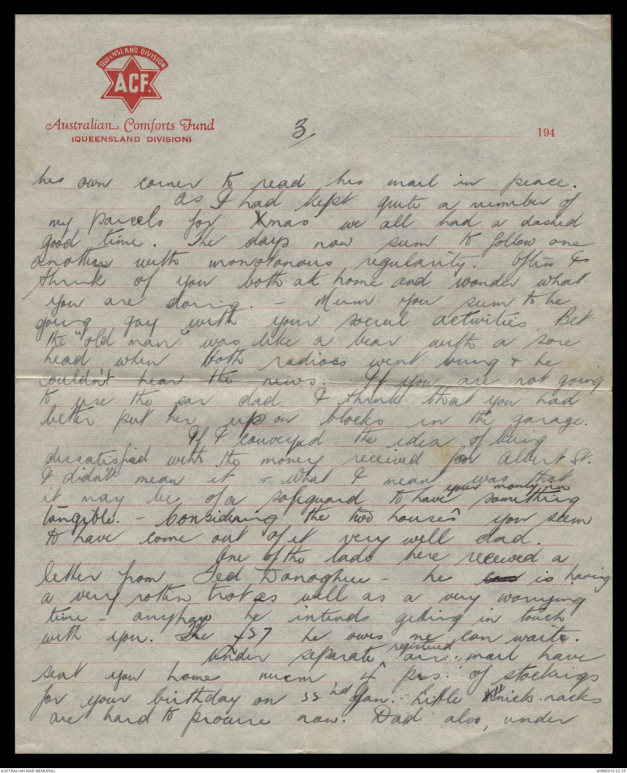 QUEENSLAND DIVISION
ACF.
Australian Comforts Fund
(QUEENSLAND DIVISION)
3
194
his own corner to read his mail in peace.
As I had kept quite a number of
my parcels for Xmas we all had a dashed
good time. The days now seem to follow one
another with monotonous regularity. Often I
think of you both at home and wonder what
you are doing. - Mum you seem to be
going gay with your social activities. Bet
the "old man" was like a bear with a sore
head when both radios went bung & he
couldn't hear the news. If you are not going
to use the car dad I think that you had
better put her up on blocks in the garage.
If I conveyed the idea of being
dissatisfied with the money received for Albert St.
I didn't mean it & what I meant was that
it may be of a safeguard to have your money in something
tangible. - Considering the two houses you seem
to have come out of it very well dad.
One of the lads here received a
letter from Ted Donoghue - he is having
a very rotten trot as well as a very worrying
time - anyhow he intends getting in touch
with you. The £37 he owes me can wait.
Under separate registered air mail have
sent you home mum 4 prs. of stockings
for your birthday on 22nd Jan. - Little knick-racks
are hard to procure now. Dad also, under
AUSTRALIAN WAR MEMORIAL